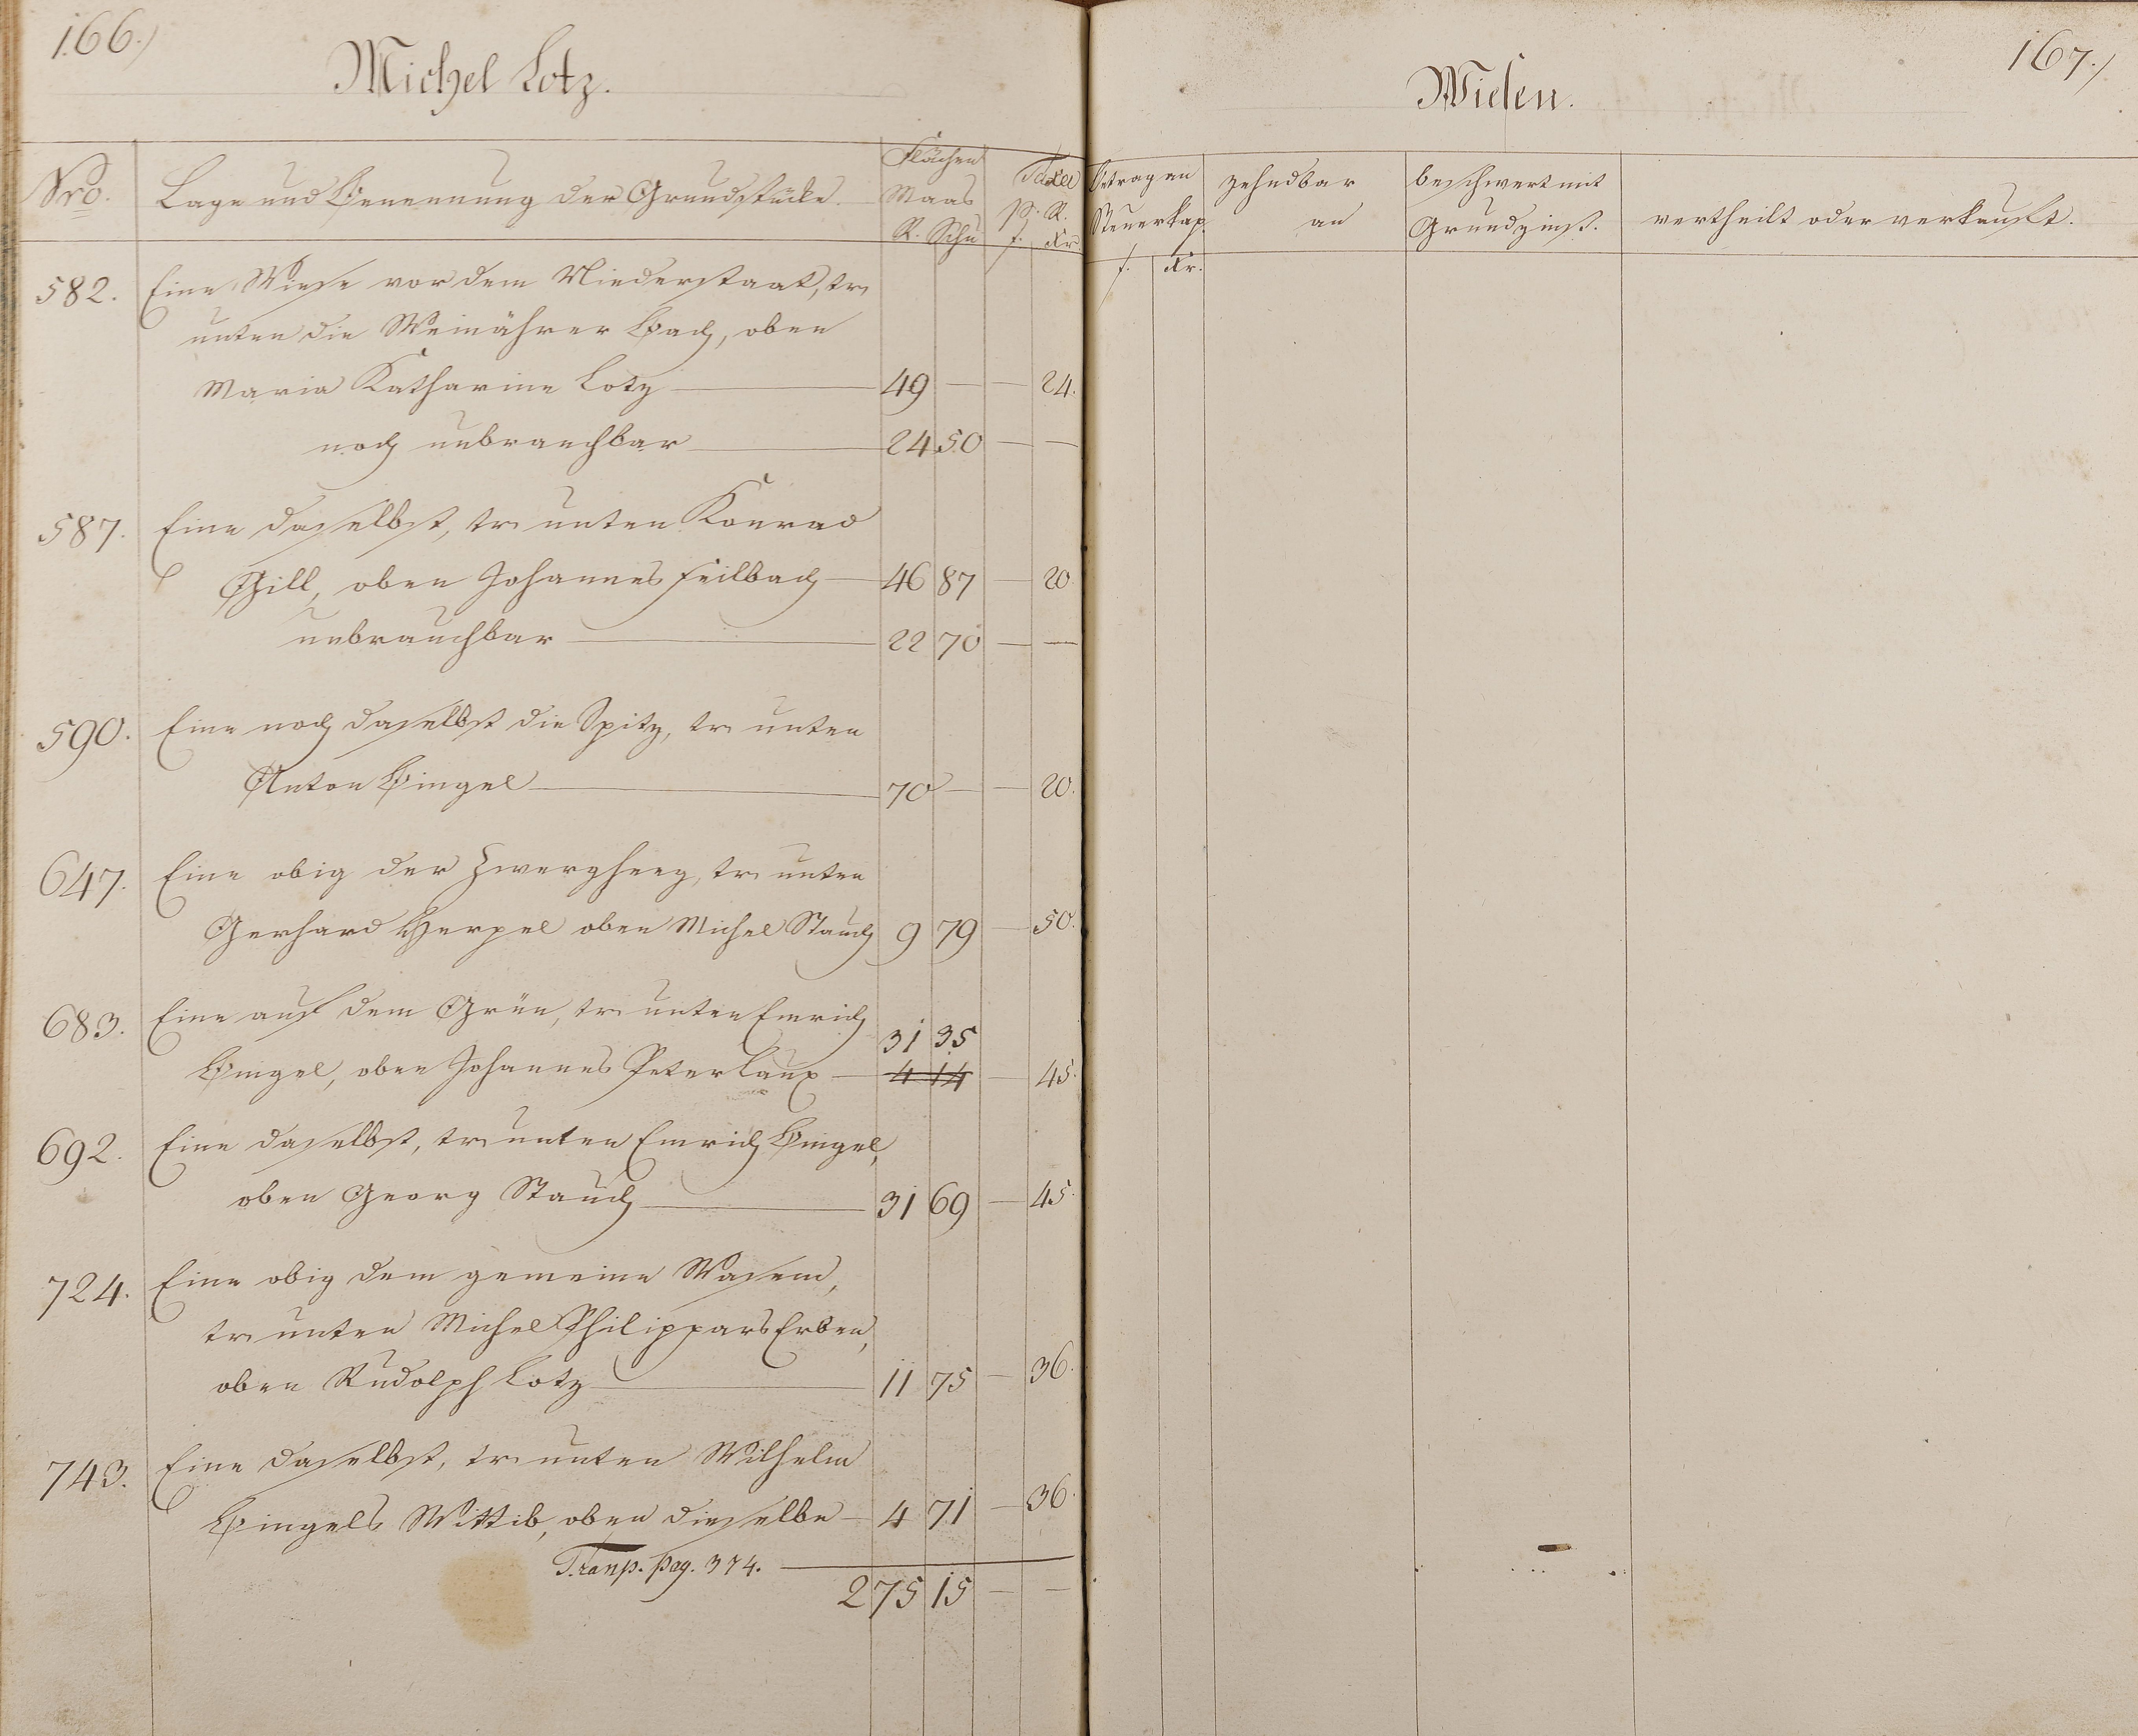 166.)
Michel Lotz.
Nro. Lage und Benennung der Grundstücke. Flächen Maas R. Schu Taxe p. R. f. Kr.
582. Eine Wiese vor dem Niederstaat, tr.
unten die Weinährer Bach, oben
Maria Katharine Lotz — 49 — — 24.
noch unbrauchbar — 24 50 — —
587. Eine daselbst, tr. unten Konrad
Gill, oben Johannes Feilbach — 46 87 — 20.
unbrauchbar — 22 70 — —
590. Eine noch daselbst die Spitz, tr. unten
Anton Bingel — 70 — — 20.
647. Eine obig der Zwergheeg, tr. unten
Gerhard Herpel oben Michel Stauch 9 79 — 50.
683. Eine auf dem Grün, tr. unten Emrich
31 35
Bingel, oben Johannes Peter Laux — 4 14 — 45.
692. Eine daselbst, tr. unten Emrich Bingel,
oben Georg Stauch — 31 69 — 45.
724. Eine obig dem gemeine Wasem,
tr. unten Michel Philippars Erben,
oben Rudolph Lotz — 11 75 — 36.
743. Eine daselbst, tr. unten Wilhelm
Bingels Wittib, oben dieselbe — 4 71 — 36.
Tranp. pag. 374. —
275 15 — —
167.)
Wiesen.
Betrag an Steuerkap. f. Kr. zehndbar an beschwert mit Grundzinß. vertheilt oder verkauft.